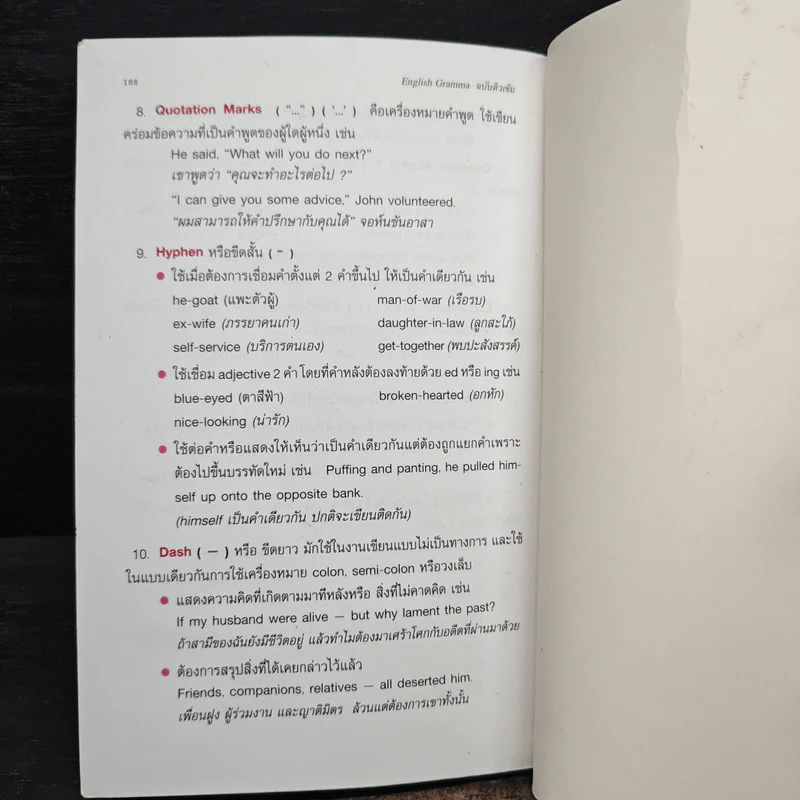 168
English Gramma ฉบับติวเข้ม
8. Quotation Marks ( "..." ) ( '...' ) คือเครื่องหมายคำพูด ใช้เขียน
คร่อมข้อความที่เป็นคำพูดของผู้ใดผู้หนึ่ง เช่น
He said, "What will you do next?"
เขาพูดว่า "คุณจะทำอะไรต่อไป ?"
"I can give you some advice," John volunteered.
"ผมสามารถให้คำปรึกษากับคุณได้" จอห์นขันอาสา
9. Hyphen หรือขีดสั้น ( - )
● ใช้เมื่อต้องการเชื่อมคำตั้งแต่ 2 คำขึ้นไป ให้เป็นคำเดียวกัน เช่น
he-goat (แพะตัวผู้) man-of-war (เรือรบ)
ex-wife (ภรรยาคนเก่า) daughter-in-law (ลูกสะใภ้)
self-service (บริการตนเอง) get-together (พบปะสังสรรค์)
● ใช้เชื่อม adjective 2 คำ โดยที่คำหลังต้องลงท้ายด้วย ed หรือ ing เช่น
blue-eyed (ตาสีฟ้า) broken-hearted (อกหัก)
nice-looking (น่ารัก)
● ใช้ต่อคำหรือแสดงให้เห็นว่าเป็นคำเดียวกันแต่ต้องถูกแยกคำเพราะ
ต้องไปขึ้นบรรทัดใหม่ เช่น Puffing and panting, he pulled him-
self up onto the opposite bank.
(himself เป็นคำเดียวกัน ปกติจะเขียนติดกัน)
10. Dash ( — ) หรือ ขีดยาว มักใช้ในงานเขียนแบบไม่เป็นทางการ และใช้
ในแบบเดียวกันการใช้เครื่องหมาย colon, semi-colon หรือวงเล็บ
● แสดงความคิดที่เกิดตามมาทีหลังหรือ สิ่งที่ไม่คาดคิด เช่น
If my husband were alive — but why lament the past?
ถ้าสามีของฉันยังมีชีวิตอยู่ แล้วทำไมต้องมาเศร้าโศกกับอดีตที่ผ่านมาด้วย
● ต้องการสรุปสิ่งที่ได้เคยกล่าวไว้แล้ว
Friends, companions, relatives — all deserted him.
เพื่อนฝูง ผู้ร่วมงาน และญาติมิตร ล้วนแต่ต้องการเขาทั้งนั้น